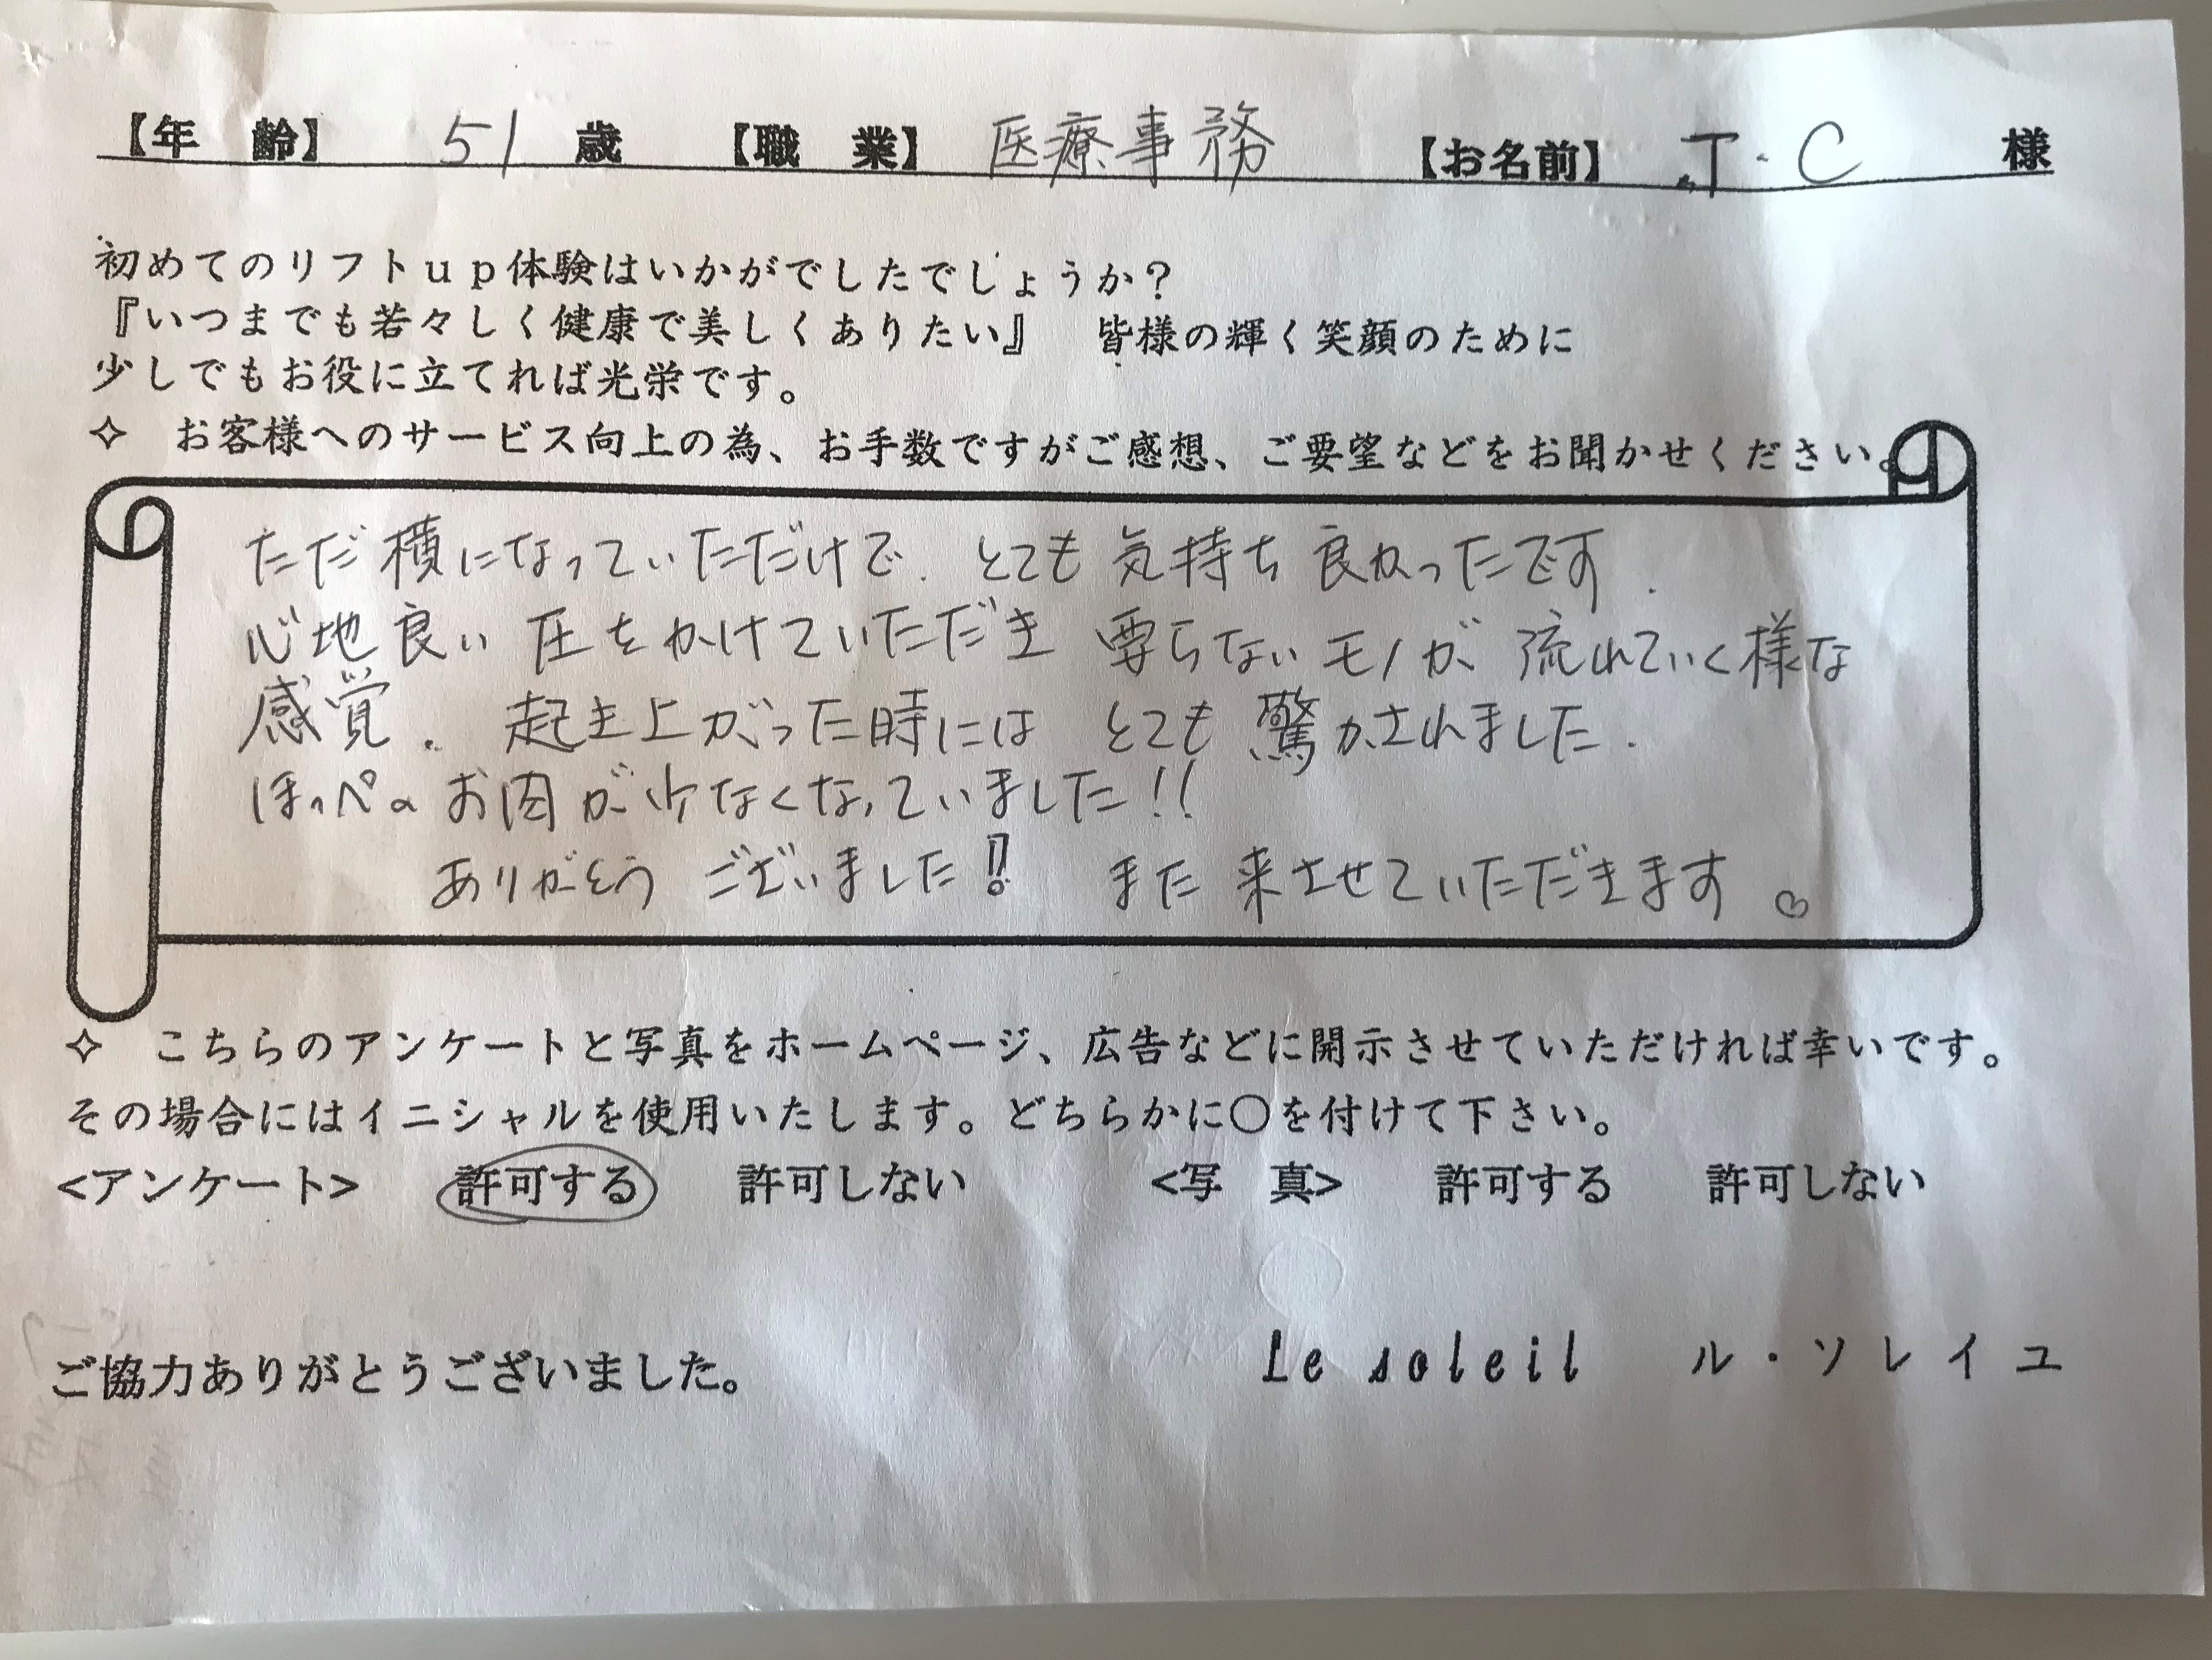 【年 齢】 51 歳 【職 業】 医療事務 【お名前】 T・C 様
初めてのリフトup体験はいかがでしたでしょうか？
『いつまでも若々しく健康で美しくありたい』 皆様の輝く笑顔のために
少しでもお役に立てれば光栄です。
✧ お客様へのサービス向上の為、お手数ですがご感想、ご要望などをお聞かせください。
ただ横になっていただけで、とても気持ち良かったです.
心地良い圧をかけていただき 要らないモノが流れていく様な
感覚. 起き上がった時には とても驚かされました.
ほっぺのお肉が少なくなっていました!!
ありがとうございました!! また来させていただきます♡
✧ こちらのアンケートと写真をホームページ、広告などに開示させていただければ幸いです。
その場合にはイニシャルを使用いたします。どちらかに〇を付けて下さい。
<アンケート> 許可する 許可しない <写 真> 許可する 許可しない
ご協力ありがとうございました。 Le soleil ル・ソレイユ